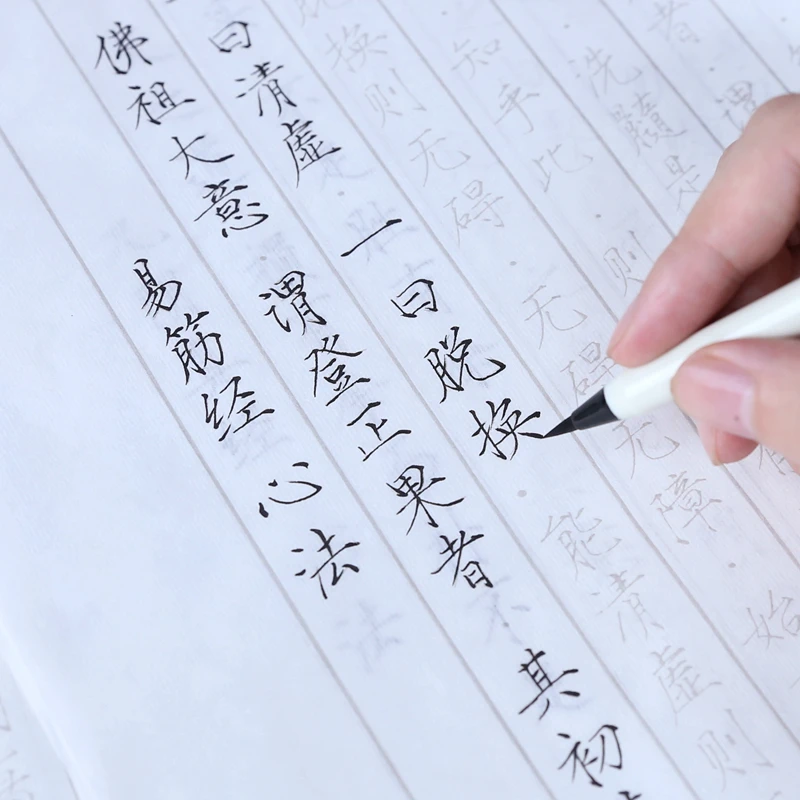 易筋经心法
佛祖大意 谓登正果者 其初
曰清虚 一曰脱换 能清虚则
脱换则无碍 无碍无障 始
知乎此 则
洗髓是
者 谓